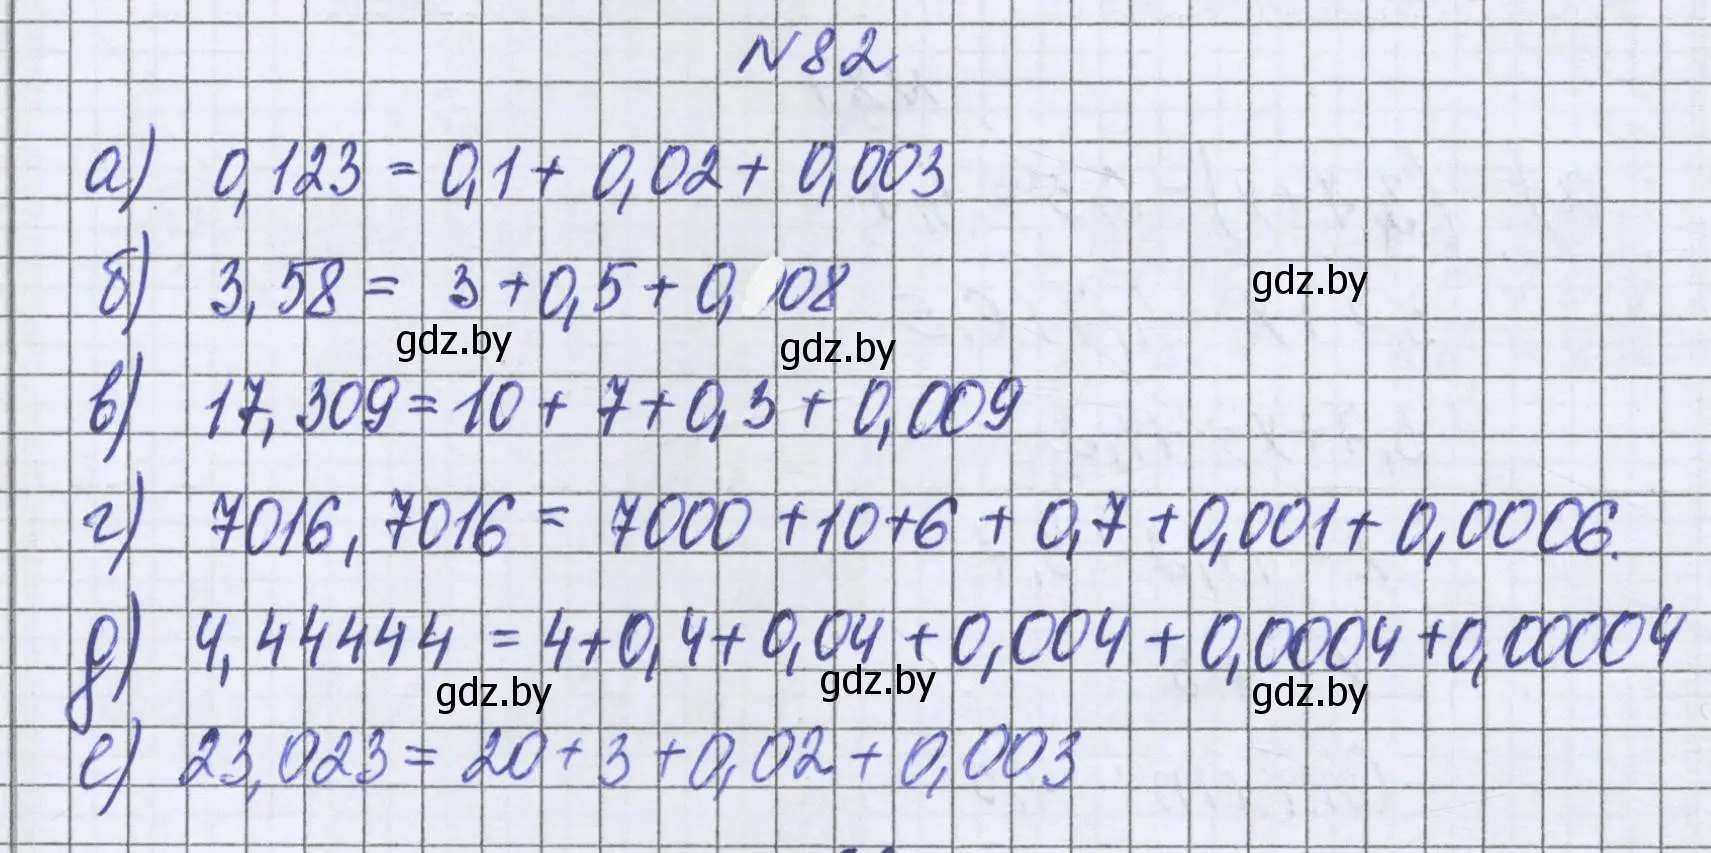 N 82
а) 0,123 = 0,1 + 0,02 + 0,003
б) 3,58 = 3 + 0,5 + 0,08
gdz.by
gdz.by
gdz.by
в) 17,309 = 10 + 7 + 0,3 + 0,009
г) 7016,7016 = 7000 + 10 + 6 + 0,7 + 0,001 + 0,0006.
д) 4,44444 = 4 + 0,4 + 0,04 + 0,004 + 0,0004 + 0,00004
gdz.by
gdz.by
gdz.by
е) 23,023 = 20 + 3 + 0,02 + 0,003